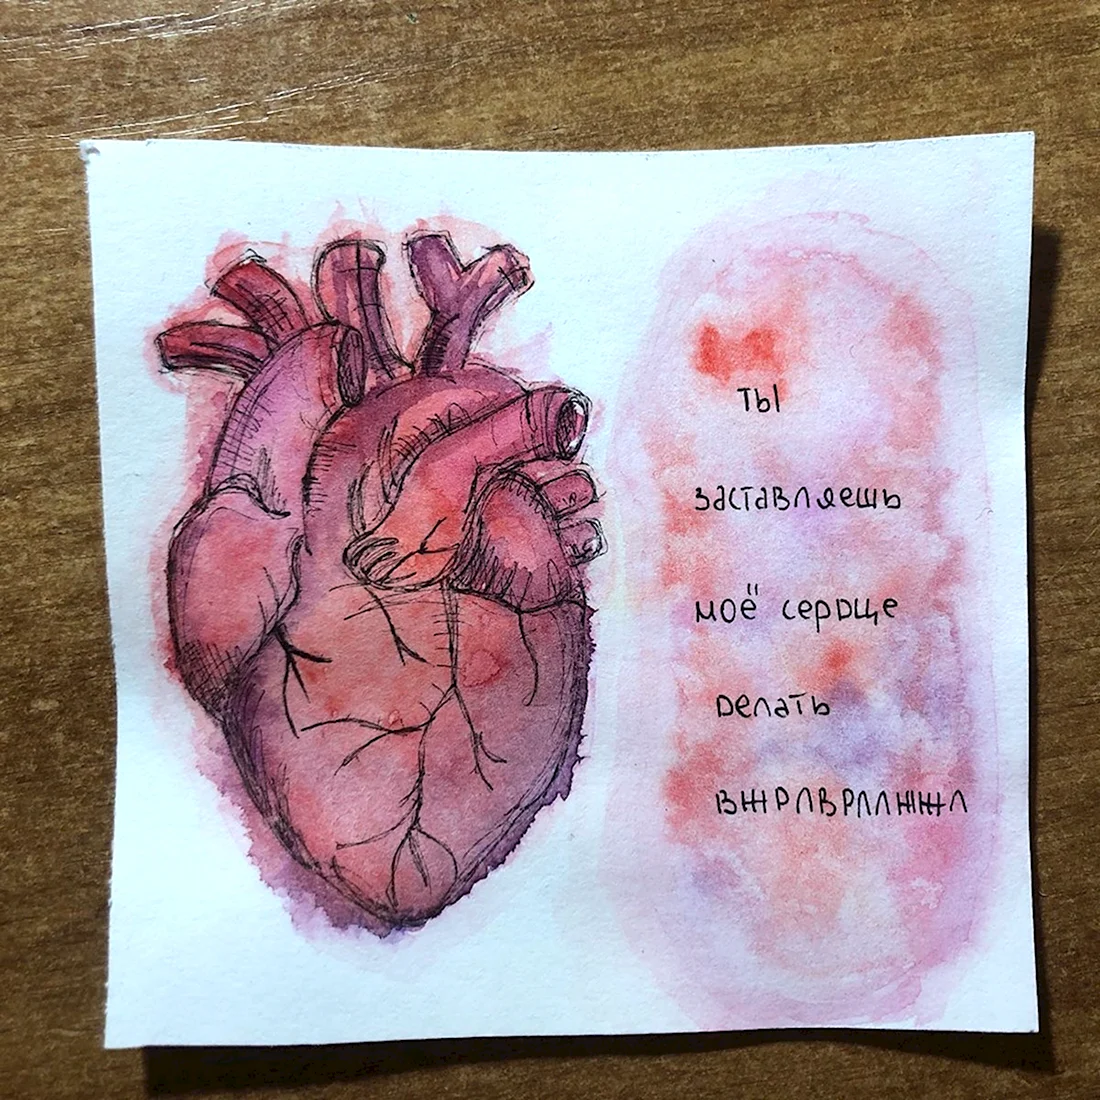 ты
заставляешь
моё сердце
делать
вжрлврллжжл